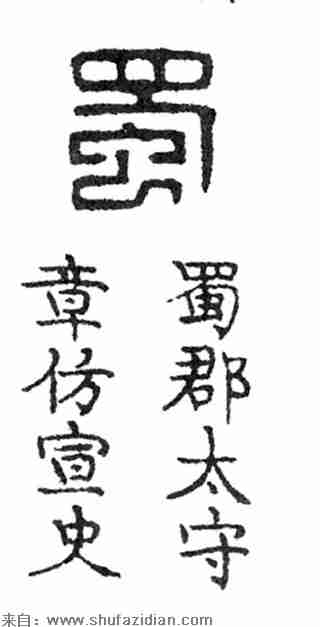 蜀
蜀郡太守
章仿宣史
来自：www.shufazidian.com